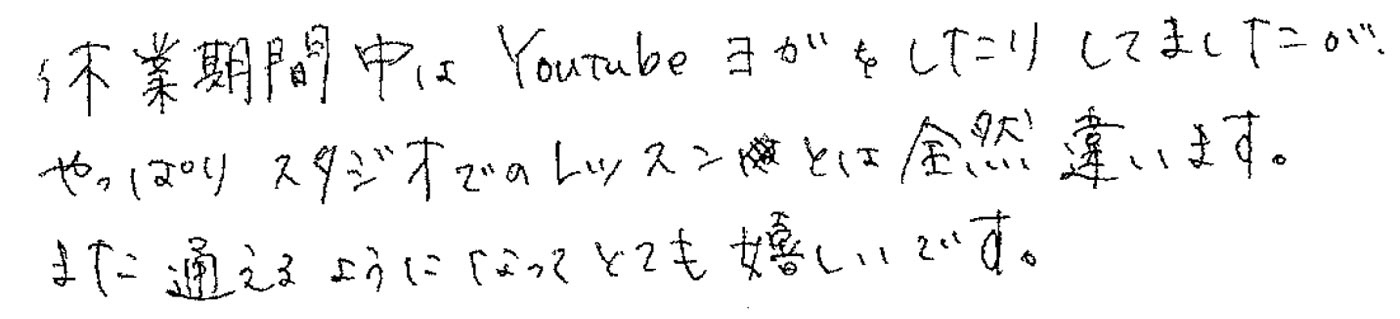 休業期間中は Youtube ヨガをしたりしてましたが、
やっぱりスタジオでのレッスンとは全然違います。
また通えるようになってとても嬉しいです。